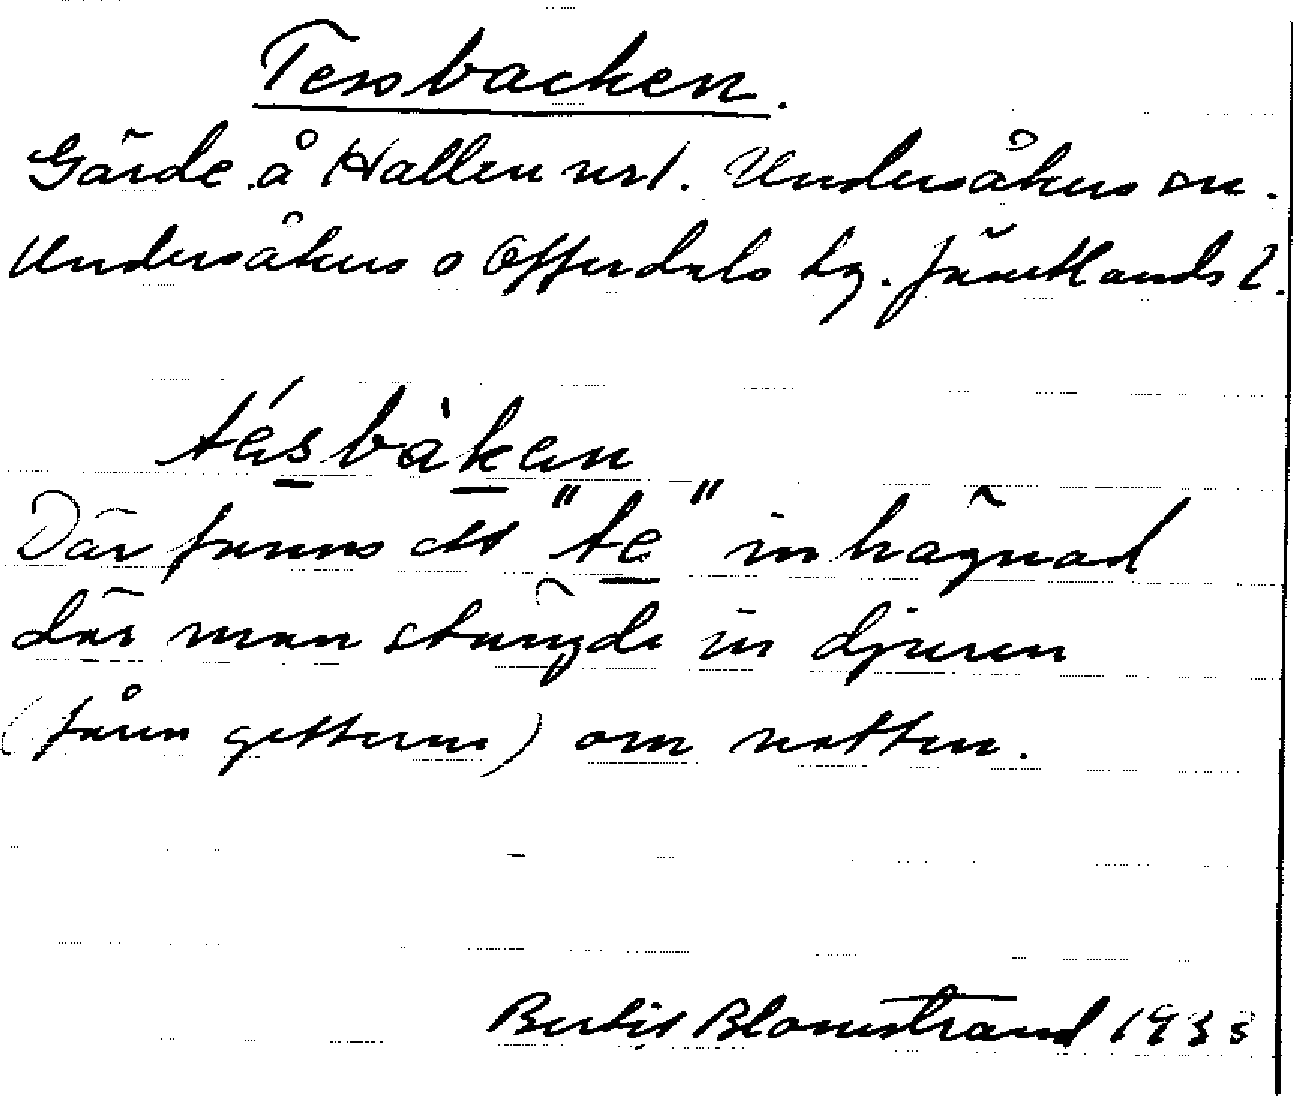 Tessbacken.
Gärde å Hallen nr 1. Undersåkers sn.
Undersåkers o Offerdals tg. Jämtlands l.
tésbàkan
Där fanns ett "te" inhägnad
där man stängde in djuren
(fåren getterna) om natten.
Bertil Blomstrand 193